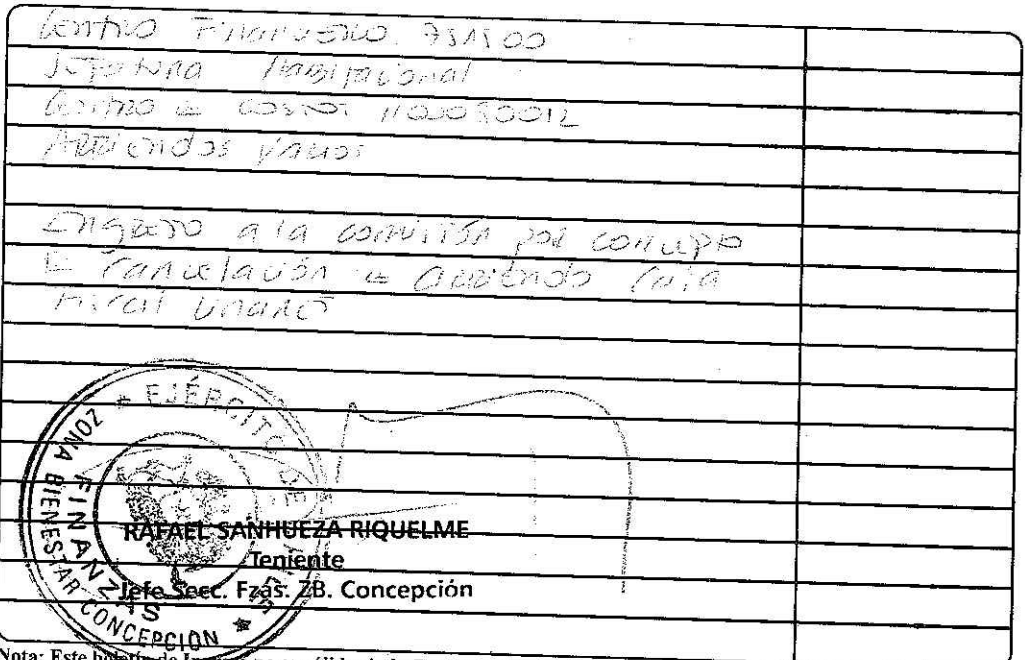 Centro Financiero 751500
Jefatura Habitacional
Centro de costos 1100080012
Arriendos Varios
Engreso a la comisión por concepto
de Cancelación de Arriendo Casa
Fiscal Linares
EJÉRCITO DE
ZONA BIENESTAR CONCEPCIÓN
FINANZAS
RAFAEL SANHUEZA RIQUELME
Teniente
Jefe Secc. Fzas. ZB. Concepción
Nota: Este boletín de